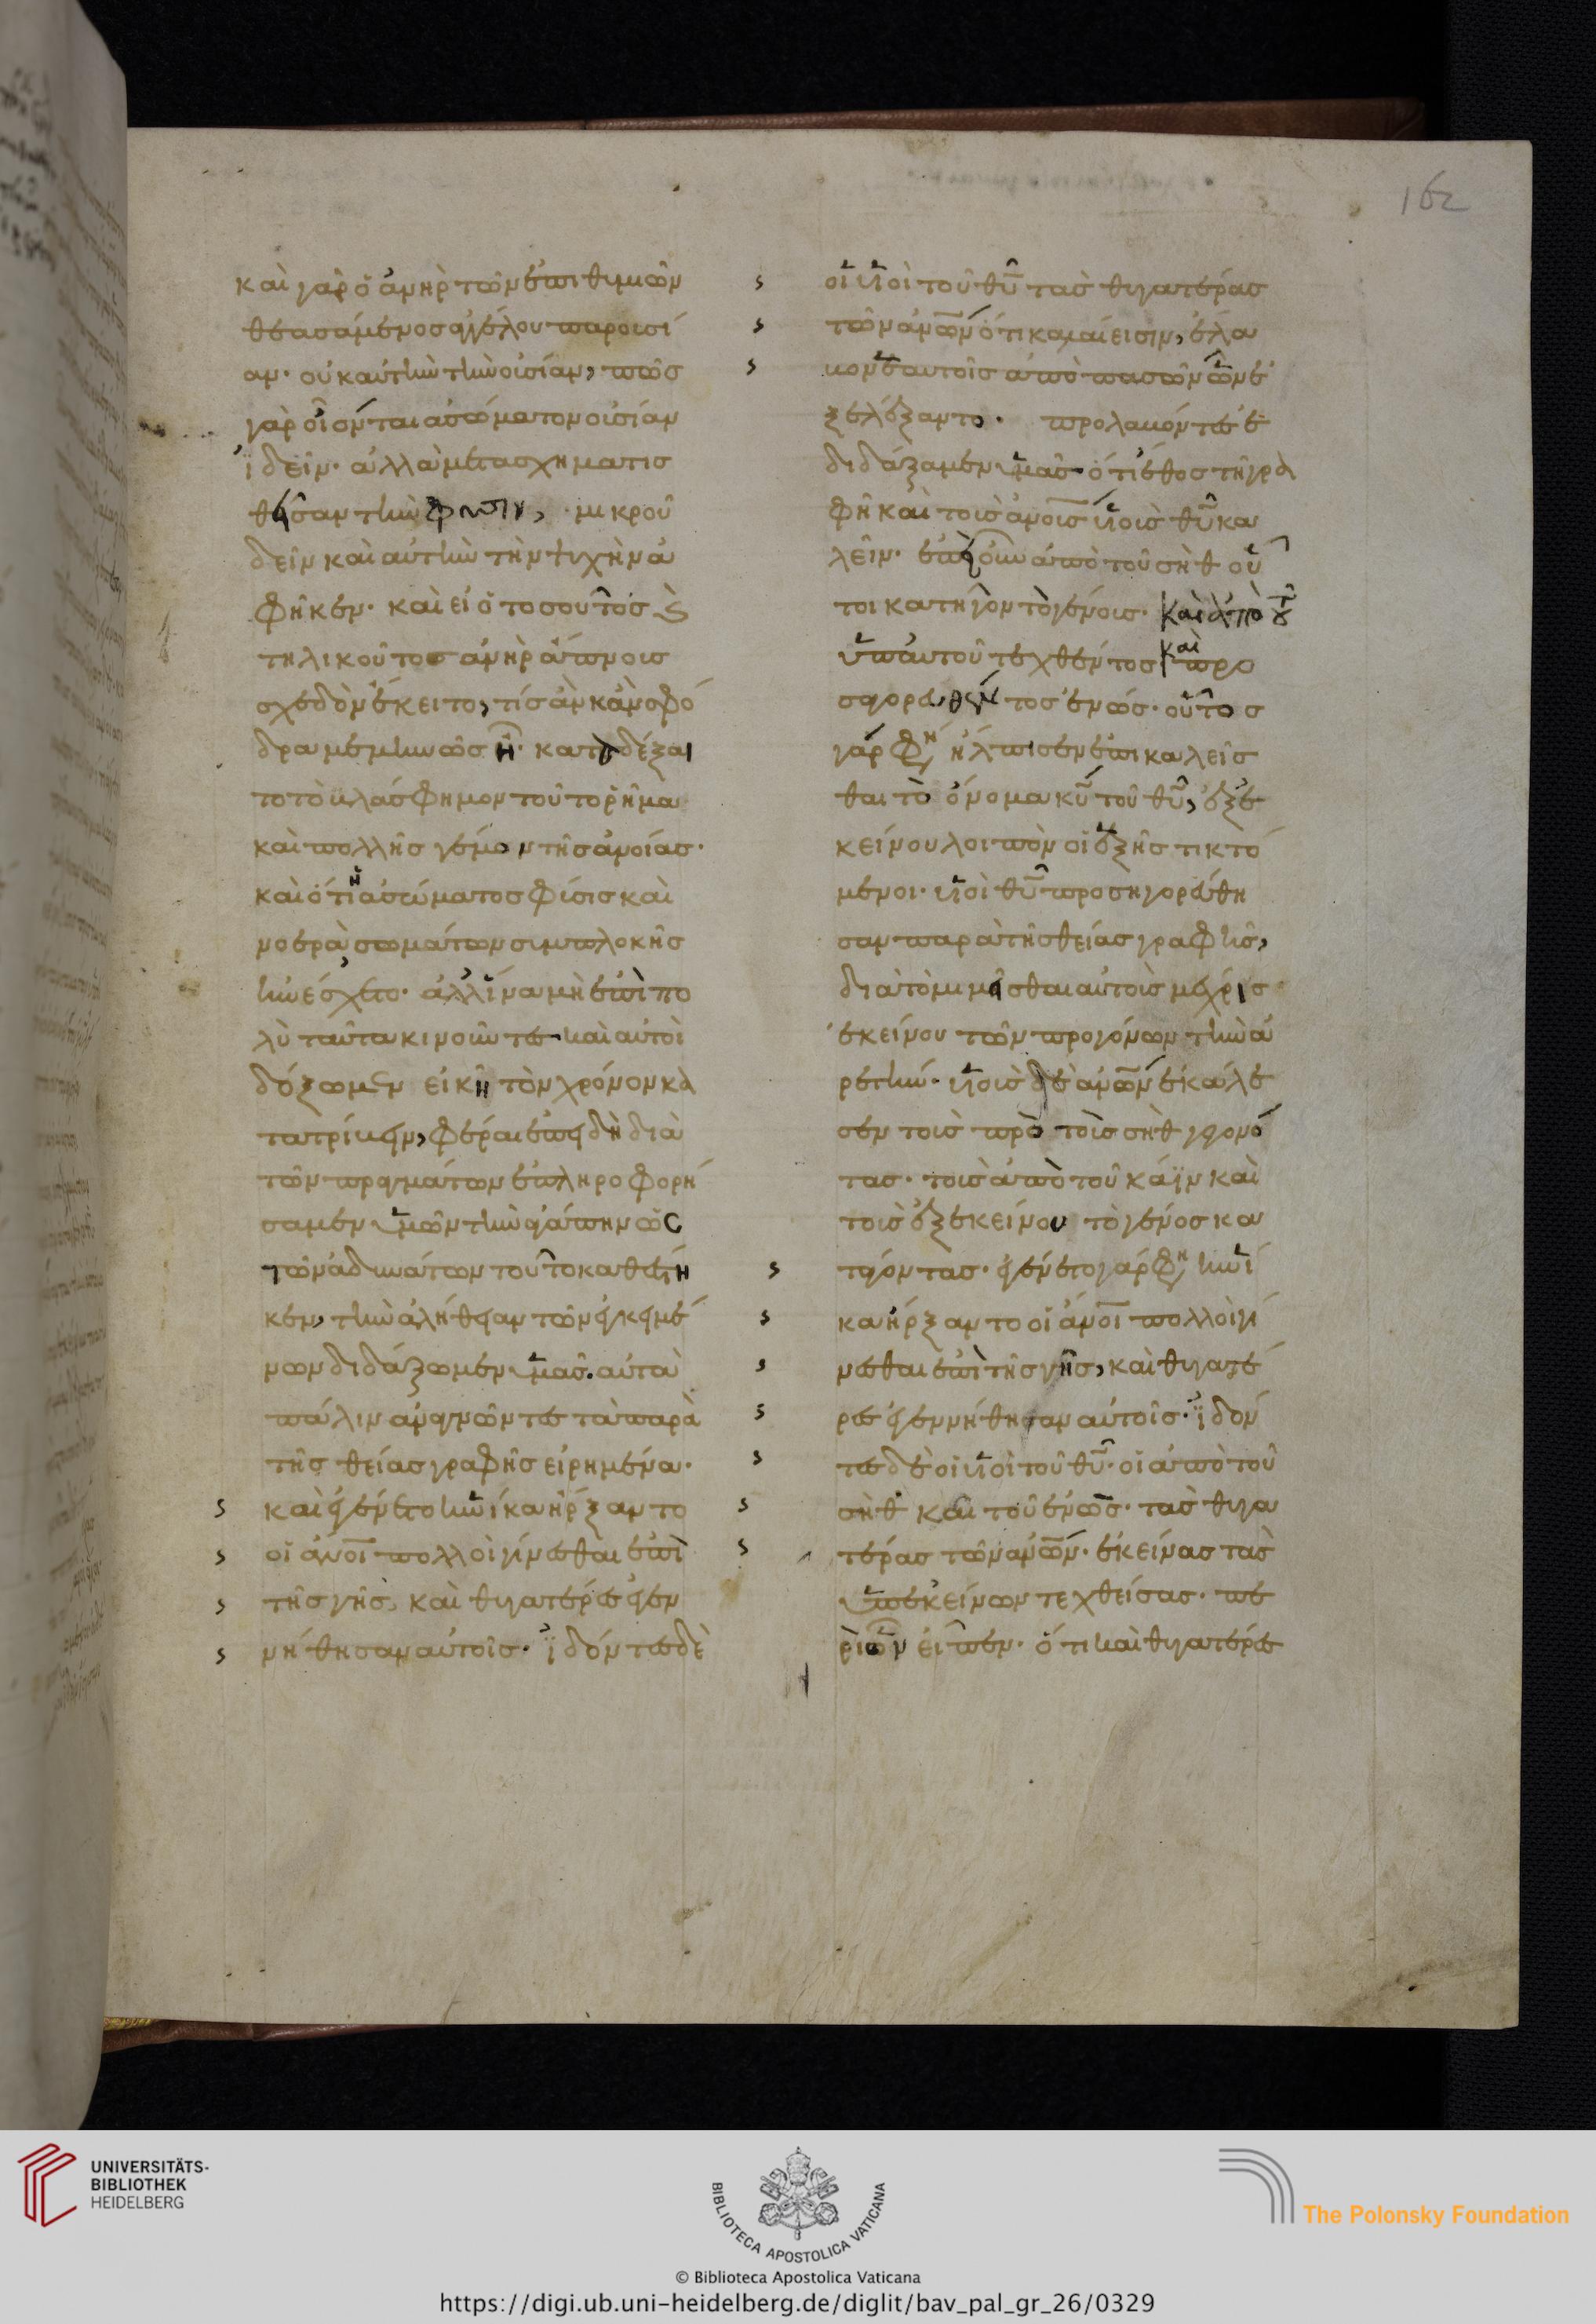 162
καὶ γὰρ ὁ ἀνὴρ τῶν ἐπιθυμιῶν
θεασάμενος ἀγγέλου παρουσί
αν· οὐκ αὐτὴν τὴν οὐσίαν, πῶς
γὰρ οἷόν τε ἀσώματον οὐσίαν
ἰδεῖν· ἀλλὰ μετασχηματισ
θεῖσαν τὴν φύσιν, μικροῦ
δεῖν καὶ αὐτὴν τὴν ψυχὴν ἀ
φῆκεν· καὶ εἰ ὁ τοσοῦτος καὶ
τηλικοῦτος ἀνὴρ ἄπνους
σχεδὸν ἔκειτο, τίς ἂν κἂν σφό
δρα μεμηνὼς ἦ· καταδέξαι
το τὸ βλάσφημον τοῦτο ῥῆμα
καὶ πολλῆς γέμον τῆς ἀνοίας·
καὶ ὅτι ἡ ἀσώματος φύσις καὶ
νοερὰ σωμάτων συμπλοκῆς
ἠνέσχετο· ἀλλ' ἵνα μὴ ἐπὶ πο
λὺ ταῦτα κινοῦντες καὶ αὐτοὶ
δόξωμεν εἰκῆ τὸν χρόνον κα
τατρίβειν, φέρε ἐπειδὴ διὰ
τῶν πραγμάτων ἐπληροφορή
σαμεν ὑμῶν τὴν ἀγάπην ὡς
τῶν ἀδυνάτων τοῦτο καθεστή
κεν, τὴν ἀλήθειαν τῶν ἐγκειμέ
νων διδάξωμεν ὑμᾶς. αὐτὰ
πάλιν ἀναγνῶντες τὰ παρὰ
τῆς θείας γραφῆς εἰρημένα·
καὶ ἐγένετο ἡνίκα ἤρξαντο
οἱ ἄνοι πολλοὶ γίνεσθαι ἐπὶ
τῆς γῆς, καὶ θυγατέρες ἐγεν
νήθησαν αὐτοῖς· ἰδόντες δὲ
οἱ υἱοὶ τοῦ θυ τὰς θυγατέρας
τῶν ἀνων ὅτι καλαί εἰσιν, ἔλα
βον ἑαυτοῖς ἀπὸ πασῶν ὧν ἐ
ξελέξαντο· προλαβόντες ἐ
διδάξαμεν ὑμᾶς ὅτι ἔθος τῆ γρα
φῆ καὶ τοὺς ἀνους υἱοὺς θυ κα
λεῖν· ἐπεὶ οὖν ἀπὸ τοῦ σὴθ οὗ
τοι κατῆγον τὸ γένος· καὶ ἀπὸ τοῦ
ὑπ' αὐτοῦ τεχθέντος καὶ προ
σαγορευθέντος ἐνώς· οὗτος
γάρ φη ἤλπισεν ἐπικαλεῖσ
θαι τὸ ὄνομα κυ τοῦ θυ, ἐξ ἐ
κείνου λοιπὸν οἱ ἑξῆς τικτό
μενοι· υἱοὶ θυ προσηγορεύθη
σαν παρὰ τῆς θείας γραφῆς,
διὰ τὸ μιμεῖσθαι αὐτοὺς μέχρις
ἐκείνου τῶν προγόνων τὴν ἀ
ρετήν· υἱοὺς δὲ ἀνων ἐκάλε
σεν τοὺς πρὸ τοῦ σὴθ γεγονό
τας· τοὺς ἀπὸ τοῦ κάϊν καὶ
τοὺς ἐξ ἐκείνου τὸ γένος κα
τάγοντας· ἐγένετο γάρ φη ἡνί
κα ἤρξαντο οἱ ἄνοι πολλοὶ γί
νεσθαι ἐπὶ τῆς γῆς, καὶ θυγατέ
ρες ἐγεννήθησαν αὐτοῖς· ἰδόν
τες δὲ οἱ υἱοὶ τοῦ θυ· οἱ ἀπὸ τοῦ
σὴθ καὶ τοῦ ἐνώς· τὰς θυγα
τέρας τῶν ἀνων· ἐκείνας τὰς
ὑπ' ἐκείνων τεχθείσας· πε
ρὶ ὧν εἶπεν· ὅτι καὶ θυγατέρες
UNIVERSITÄTS-
BIBLIOTHEK
HEIDELBERG
BIBLIOTECA APOSTOLICA VATICANA
© Biblioteca Apostolica Vaticana
The Polonsky Foundation
https://digi.ub.uni-heidelberg.de/diglit/bav_pal_gr_26/0329